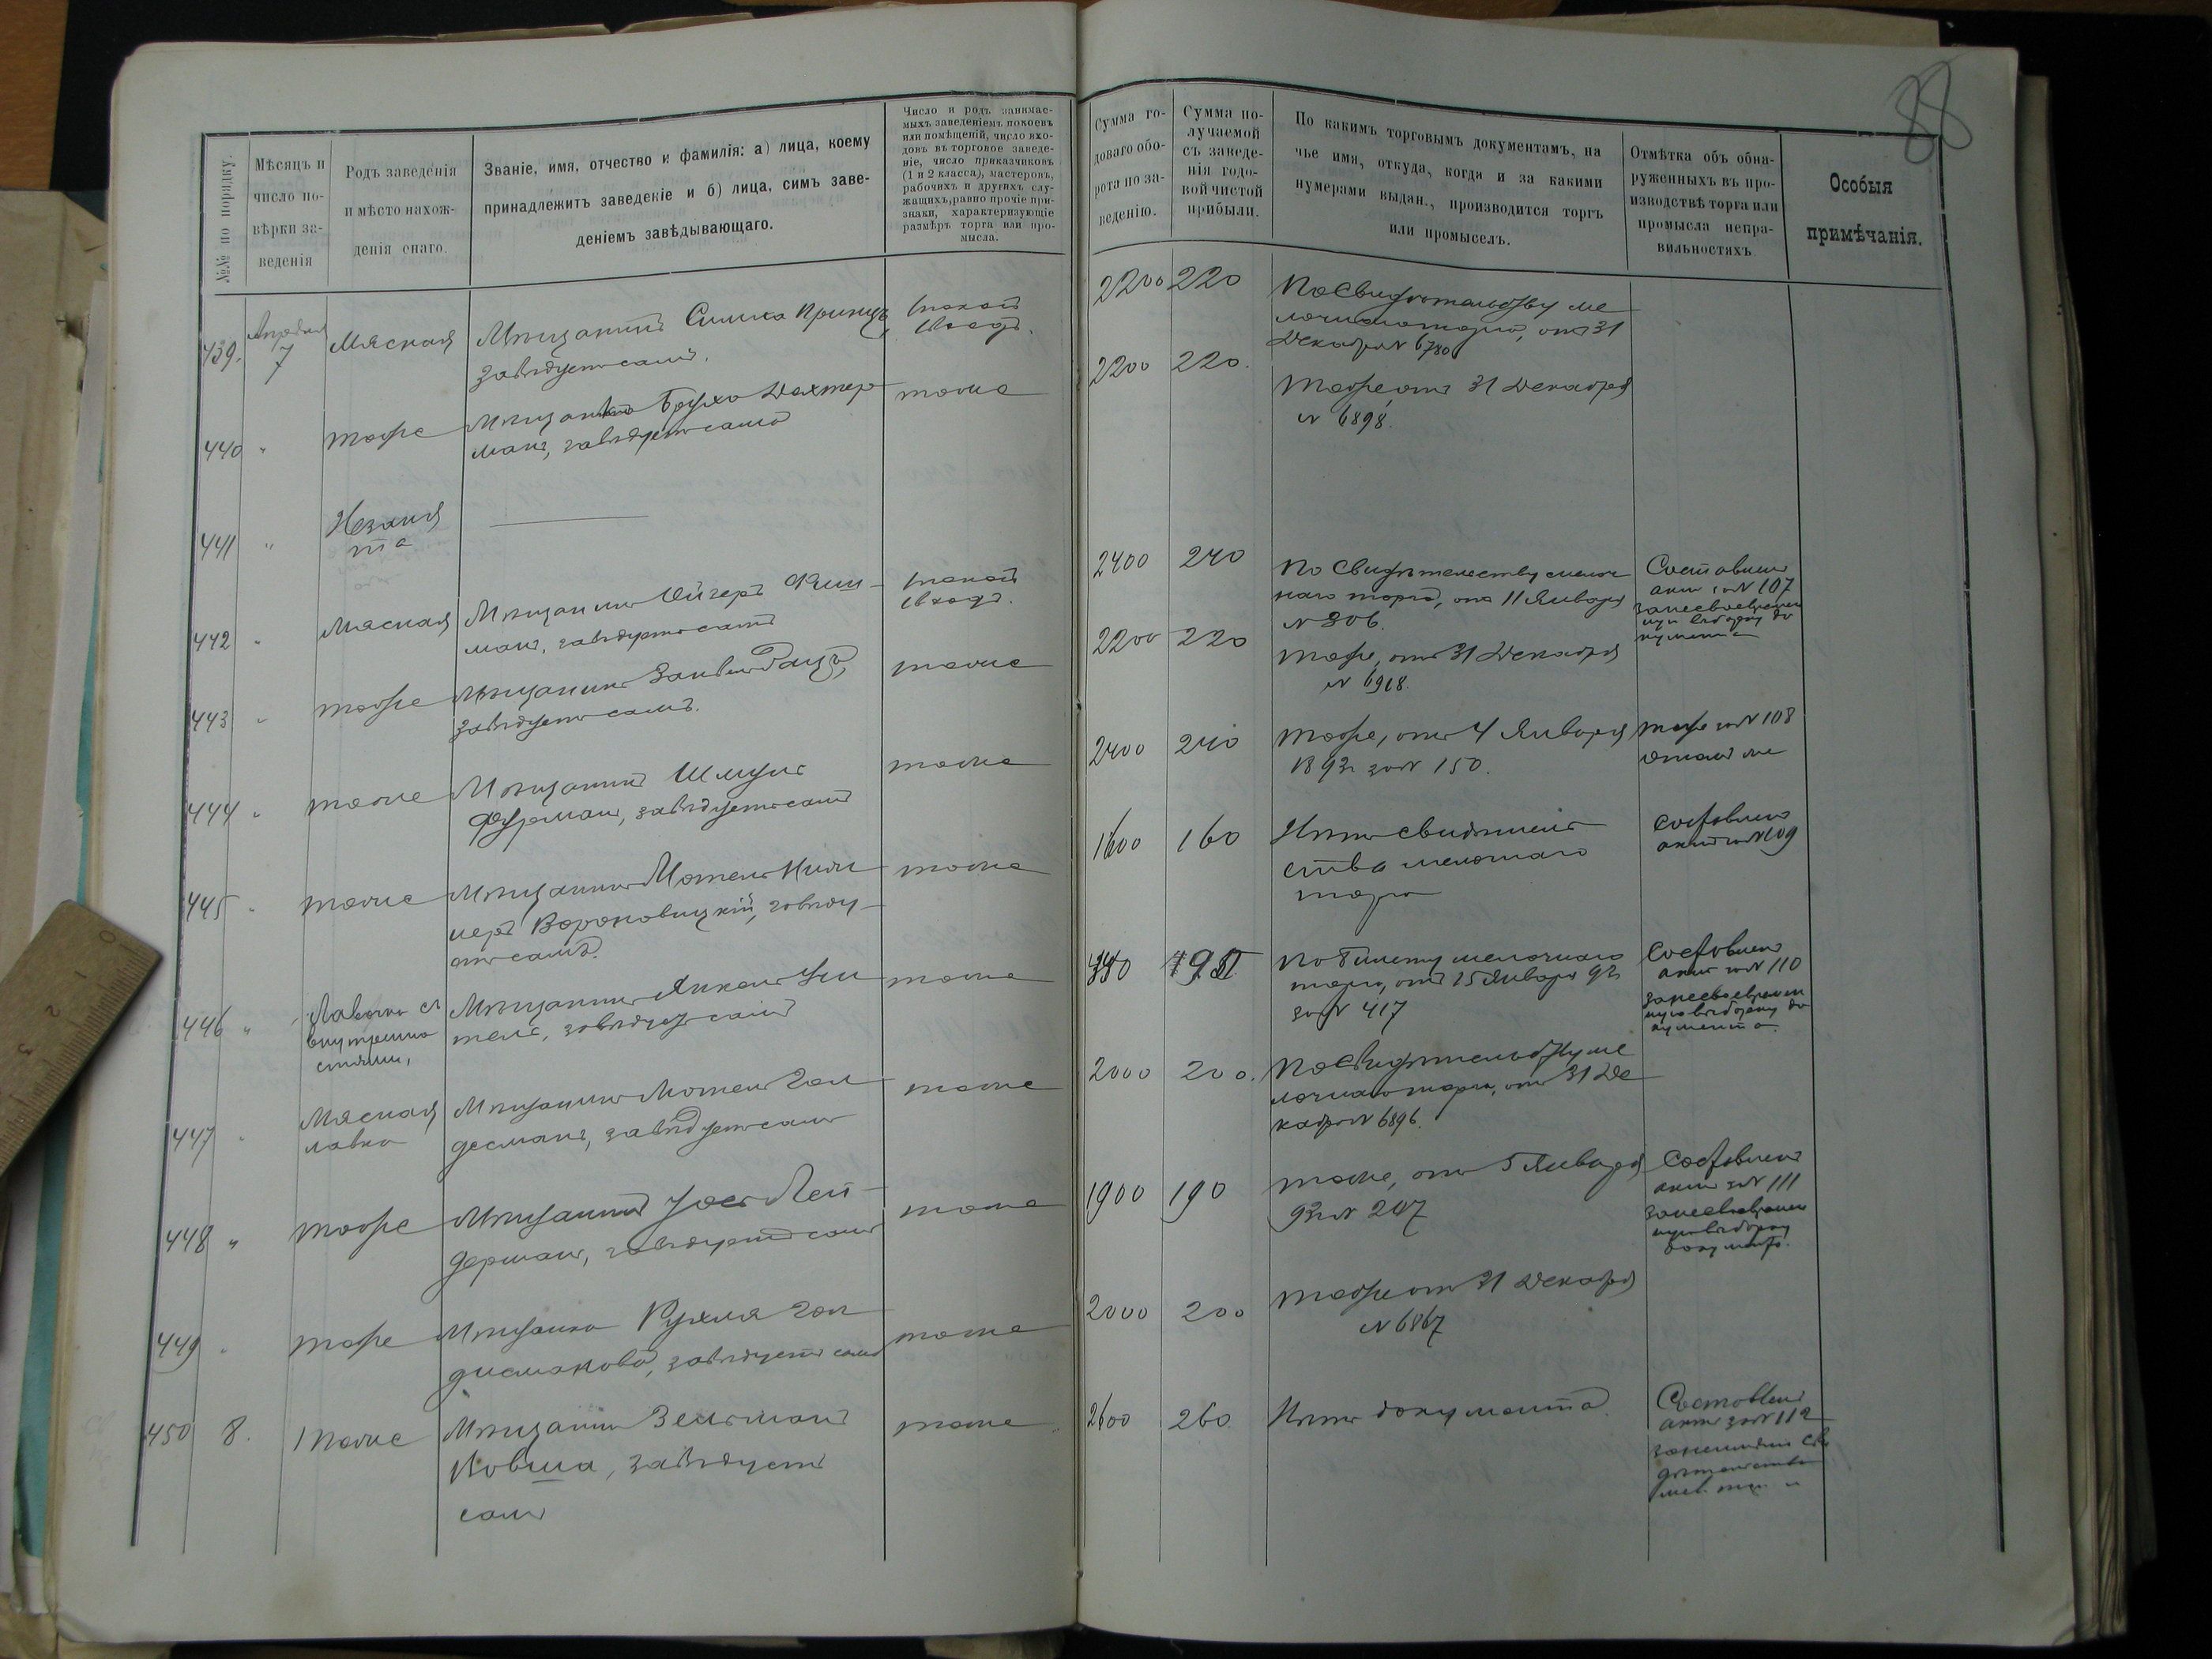 88
№№ по порядку.
Мѣсяцъ и
число по-
вѣрки за-
веденія
Родъ заведенія
и мѣсто нахож-
денія онаго.
Званіе, имя, отчество и фамилія: а) лица, коему
принадлежитъ заведеніе и б) лица, симъ заве-
деніемъ завѣдывающаго.
Число и родъ занимае-
мыхъ заведеніемъ покоевъ
или помѣщеній, число вхо-
довъ въ торговое заведе-
ніе, число приказчиковъ
(1 и 2 класса), мастеровъ,
рабочихъ и другихъ слу-
жащихъ, равно прочіе при-
знаки, характеризующіе
размѣръ торга или про-
мысла.
Сумма го-
доваго обо-
рота по за-
веденію.
Сумма по-
лучаемой
съ заведе-
нія годо-
вой чистой
прибыли.
По какимъ торговымъ документамъ, на
чье имя, откуда, когда и за какими
нумерами выдан., производится торгъ
или промыселъ.
Отмѣтка объ обна-
руженныхъ въ про-
изводствѣ торга или
промысла непра-
вильностяхъ
Особыя
примѣчанія.
439.
Апрѣля
7
Мясная
Мѣщанинъ Симха Принцъ,
завѣдуетъ самъ.
1 покой
1 входъ.
2200 220
По свидѣтельству ме
лочнаго торга, отъ 31
Декабря № 6780
440 "
тоже
Мѣщанинъ Брухо Дахтер
манъ, завѣдуетъ самъ
тоже
2200 220.
Тоже, отъ 31 Декабря
№ 6898.
441 "
Незаня
та
442 "
Мясная
Мѣщанинъ Ойгеръ Фиш-
манъ, завѣдуетъ самъ
1 покой
1 входъ.
2400 240
По свидѣтельству мелоч
наго торга, отъ 11 Января
№ 306.
Составленъ
актъ за № 107
за несвоевремен
ную выборку до
кумента
443 "
тоже
Мѣщанинъ
завѣдуетъ самъ.
тоже
2200 220
Тоже, отъ 31 Декабря
№ 6918.
444 "
тоже
Мѣщанинъ Шмуль
Фурманъ, завѣдуетъ самъ
тоже
2400 240
Тоже, отъ 4 Января
1893 за № 150.
тоже за № 108
о томъ же
445 "
тоже
Мѣщанинъ Мотель
Вороновицкій, завѣду-
етъ самъ.
тоже
1600 160
Нѣтъ свидѣтель
ства мелочнаго
торга
Составленъ
актъ за № 109
446 "
Лавочка съ
внутренно
стями,
Мѣщанинъ Янкель
тель, завѣдуетъ самъ
тоже
По билету мелочнаго
торга, отъ 15 Января 93
за № 417
Составленъ
актъ за № 110
за несвоевремен
ную выборку до
кумента.
447 "
Мясная
лавка
Мѣщанинъ Мотель Гол
десманъ, завѣдуетъ самъ
тоже
2000 200.
По свидѣтельству ме
лочнаго торга, отъ 31 Де
кабря № 6896.
448 "
тоже
Мѣщанинъ Лей-
дерманъ, завѣдуетъ самъ
тоже
1900 190
тоже, отъ 5 Января
93 № 207
Составленъ
актъ за № 111
за несвоевремен
ную выборку
документа.
449 "
тоже
Мѣщанка Рухля Гол
дисманова, завѣдуетъ сама
тоже
2000 200
тоже отъ 31 Декабря
№ 6867
450 8.
тоже
Мѣщанинъ Зельманъ
Вовша, завѣдуетъ
самъ
тоже
2600 260
Нѣтъ документа.
Составленъ
актъ за № 112
за неимѣніе сви
дѣтельства